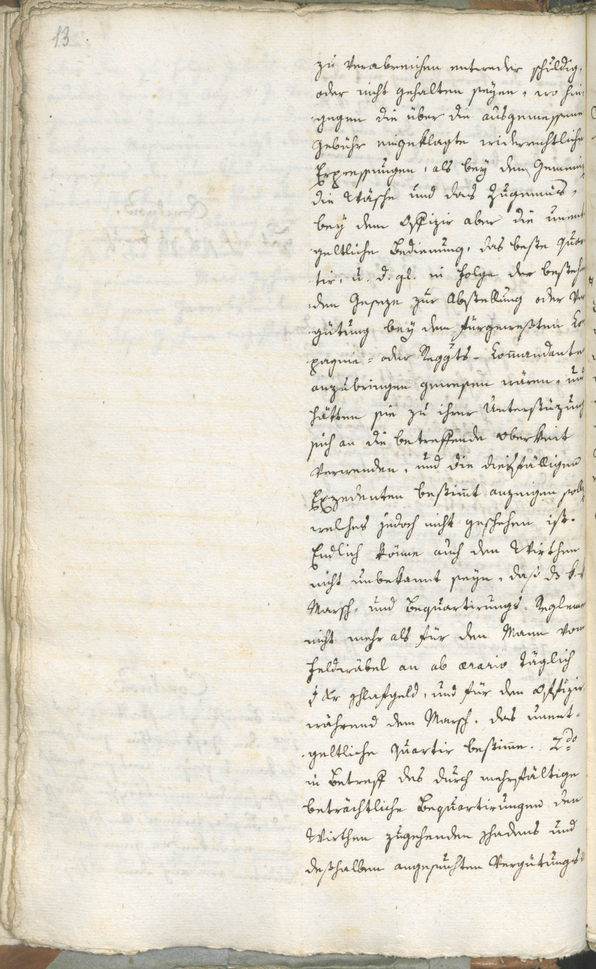 13.
zu verabreichen entweder schuldig,
oder nicht gehalten seyen, wo hin
gegen die über die ausgemessene
Gebühr eingeklagte widerrechtliche
Expressungen, als bey dem Gemein
die Wäsche und das Zugemüs,
bey dem Offizir aber die unent
geltliche Bedienung, das beste Quar
tir, u. d. gl. in Folge der bestehen
den Geseze zur Abstellung oder Ver
gütung bey dem fürgeweßten Co
pagnie- oder Reggts- Commandante
anzubringen gewesen wären, und
hätten sie zu ihrer Unterstüzung
sich an die betreffende Oberkeit
verwenden, und die diesfälligen
Exzedenten bestimt anzeigen sollen
welches jedoch nicht geschehen ist.
Endlich könne auch den Wirthen
nicht unbekannt seyn, daß das k.
Marsch- und Bequartirungs- Reglem
nicht mehr als für den Mann vom
Feldwäbel an ab aerario täglich
Schlafgeld, und für den Offizir
während dem Marsch, das unent-
geltliche Quartir bestimme. 2do
in Betreff des durch mehrfältige
beträchtliche Bequartirungen den
Wirthen zugehenden Schadens und
deßhalben angesuchten Vergütungs